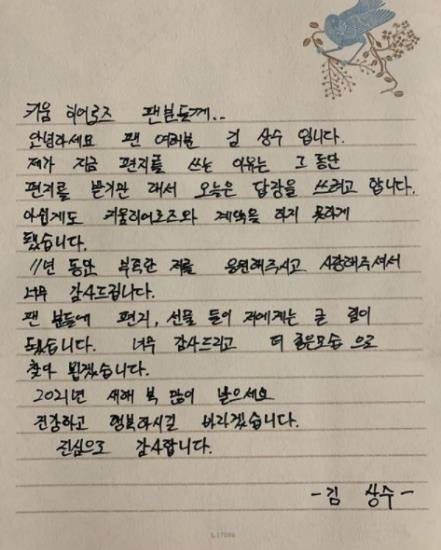 키움 히어로즈 팬분들께..
안녕하세요 팬 여러분 김 상수 입니다.
제가 지금 편지를 쓰는 이유는 그 동안
편지를 받기만 해서 오늘은 답장을 쓰려고 합니다.
아쉽게도 키움히어로즈와 계약을 하지 못하게
됐습니다.
11년 동안 부족한 저를 응원해주시고 사랑해주셔서
너무 감사드립니다.
팬 분들에 편지, 선물 들이 저에게는 큰 힘이
됐습니다. 너무 감사드리고 더 좋은모습 으로
찾아 뵙겠습니다.
2021년 새해 복 많이 받으세요
건강하고 행복하시길 바라겠습니다.
진심으로 감사합니다.
-김 상수-